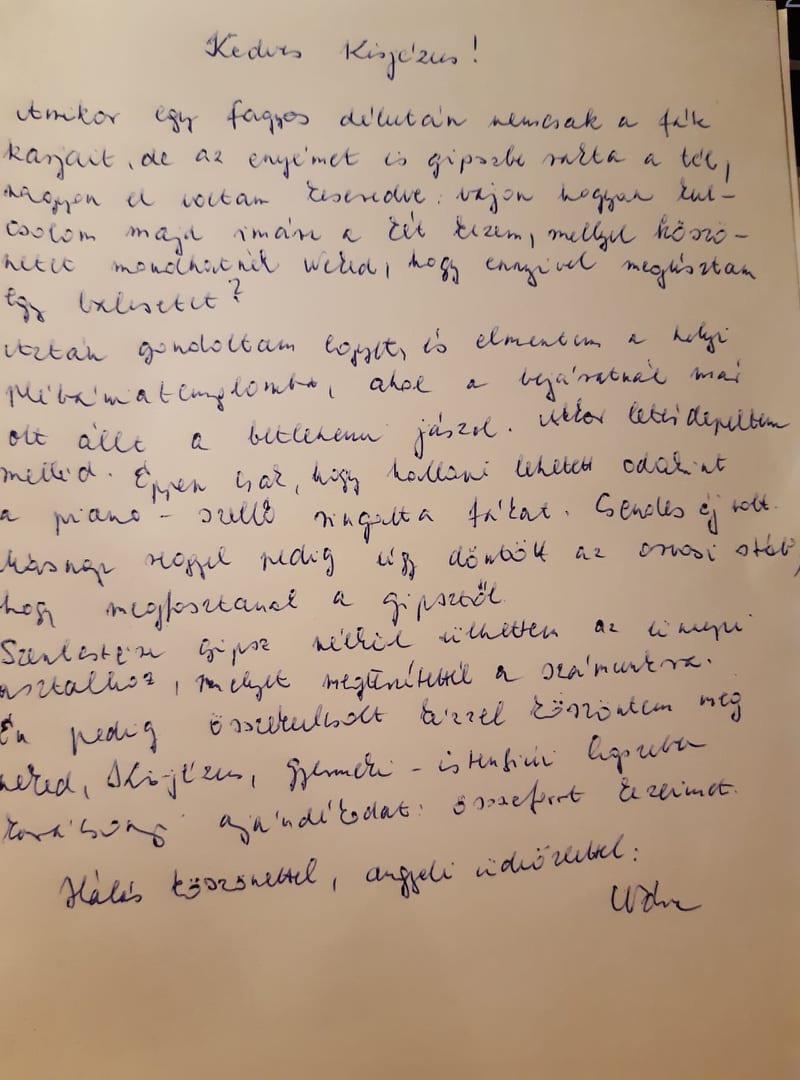 Kedves Kisjézus!
Amikor egy fagyos délután nemcsak a fák
karjait, de az enyémet is gipszbe rakta a tél,
nagyon el voltam keseredve: vajon hogyan kul-
csolom majd imára a két kezem, mellyel köszö-
netet mondhatnék Neked, hogy ennyivel megúsztam
egy balesetet?
Aztán gondoltam egyet, és elmentem a helyi
plébániatemplomba, ahol a bejáratnál már
ott állt a betlehemi jászol. Akkor letérdepeltem
melléd. Éppen csak, hogy hallani lehetett odakint
a piano - szellő ringatta fákat. Csendes éj volt.
Másnap reggel pedig úgy döntött az orvosi stáb,
hogy megfosztanak a gipsztől.
Szenteste gipsz nélkül ülhettem az ünnepi
asztalhoz, melyet megterítettél a számunkra.
Én pedig összekulcsolt kézzel köszöntem meg
neked, Kis-jézus, gyermeki - istenfiúi legszebb
karácsonyi ajándékodat: összeforrt kezeimet.
Hálás köszönettel, angyali üdvözlettel: